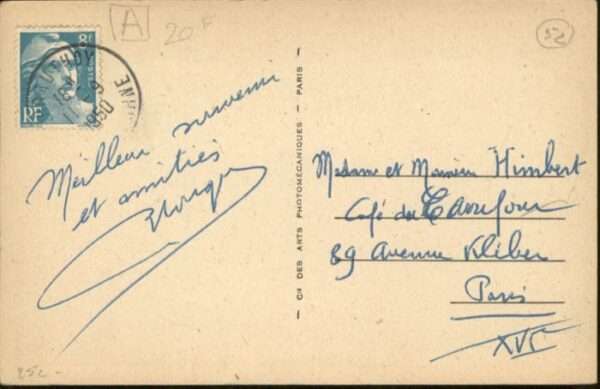 A
20F
52
8F
RF
1950
Meilleur souvenir
et amitiés
— Cie DES ARTS PHOTOMÉCANIQUES — PARIS —
Madame et Monsieur Himbert
Café du Carrefour
89 Avenue Kléber
Paris
XVIe
25c -